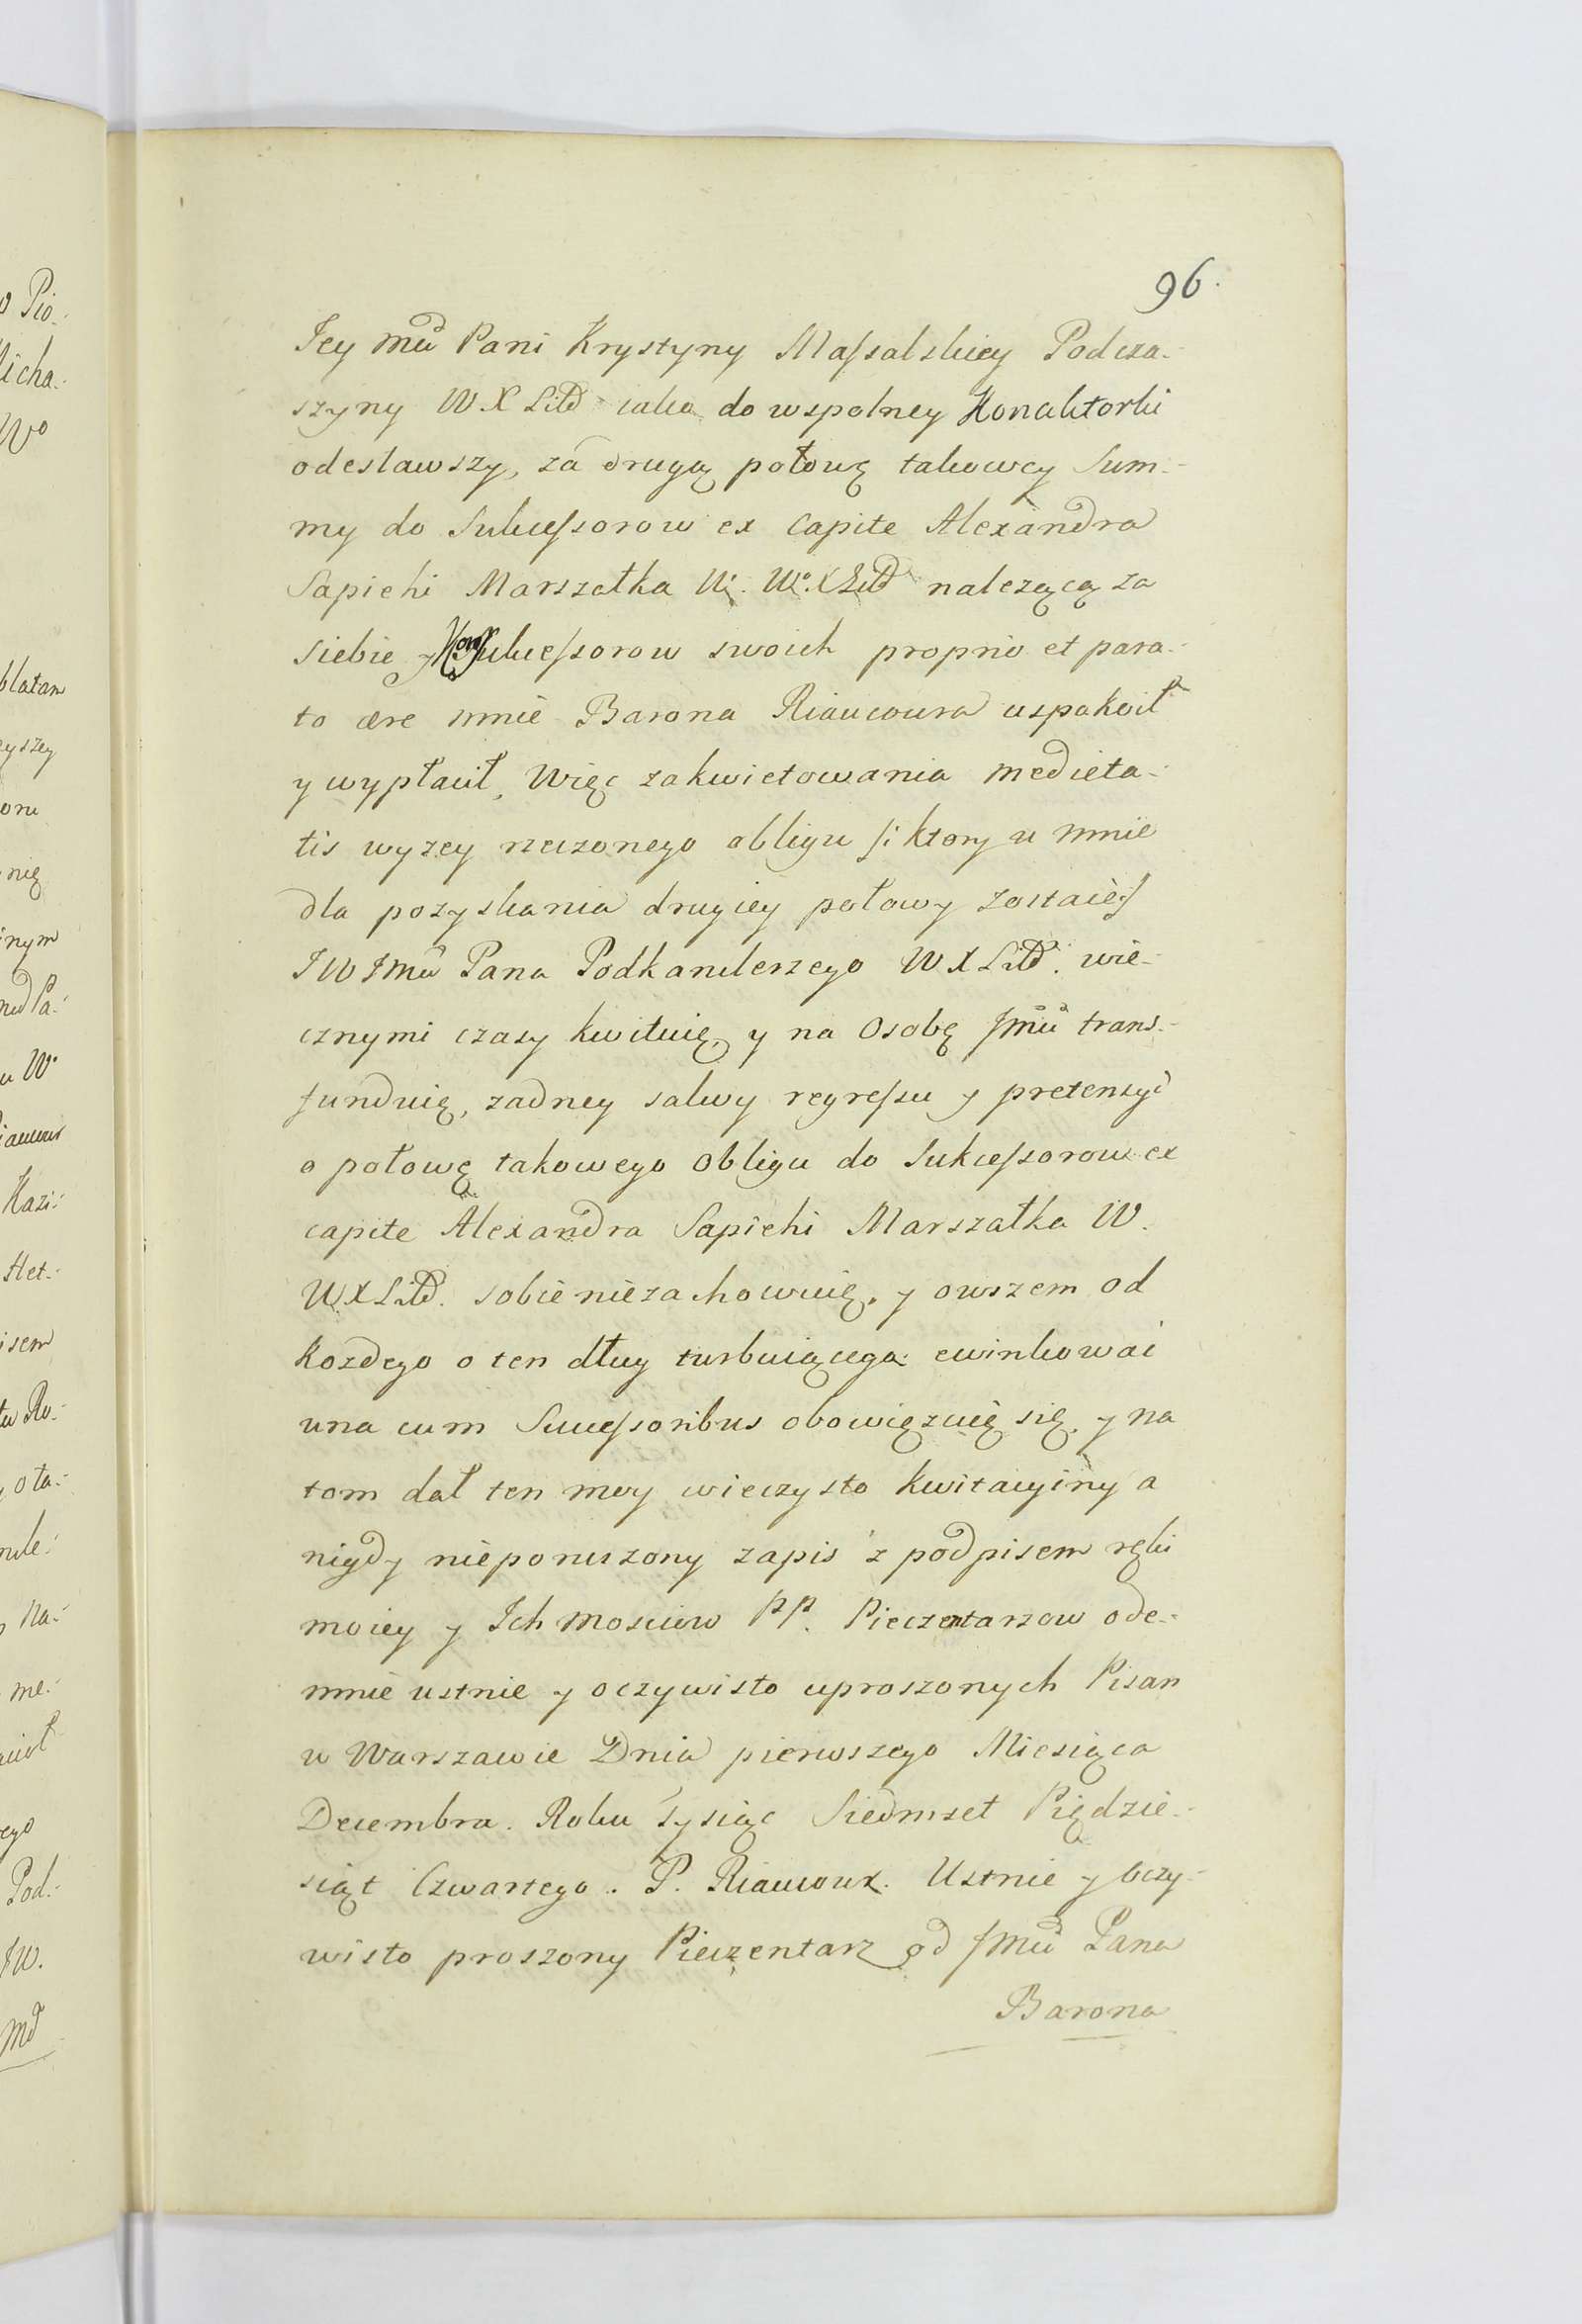 96.
Jey Mci Pani Krystyny Massalskiey Podcza-
szyny W X Litt iako do wspolney Konaktorki
odesławszy, za drugą połowę takowey Sum-
my do Sukcessorow ex capite Alexandra
Sapiehi Marszałka W. W. X Litt nalezącą za
siebie y Sukcessorow swoich proprio et para-
to ære mnie Barona Riaucoura uspokoił
y wypłacił, Więc zakwietowania medieta-
tis wyzey rzeczonego obligu /: ktory u mnie
dla pozyskania drugiey połowy zostaie :/
J W Jmci Pana Podkanclerzego W X Litt. wie-
cznymi czasy kwituię, y na Osobę Jmci trans-
funduię, zadney salwy regressu y pretensyi
o połowę takowego Obligu do Sukcessorow ex
capite Alexandra Sapiehi Marszałka W.
W X Litt. sobie niezachowuię, y owszem od
kozdego o ten dług turbuiącego ewinkować
una cum Successoribus obowięzuię się, y na
tom dał ten moy wieczysto kwitacyiny a
nigdy nieporuszony zapis z podpisem ręki
moiey y Ich Mosciow PP. Pieczentarzow ode-
mnie ustnie y oczywisto uproszonych Pisan
w Warszawie Dnia pierwszego Miesiąca
Decembra. Roku Tysiąc Siedmset Piędzie-
siąt Czwartego. P. Riaucour. Ustnie y oczy-
wisto proszony Pieczentarz od Jmci Pana
Barona